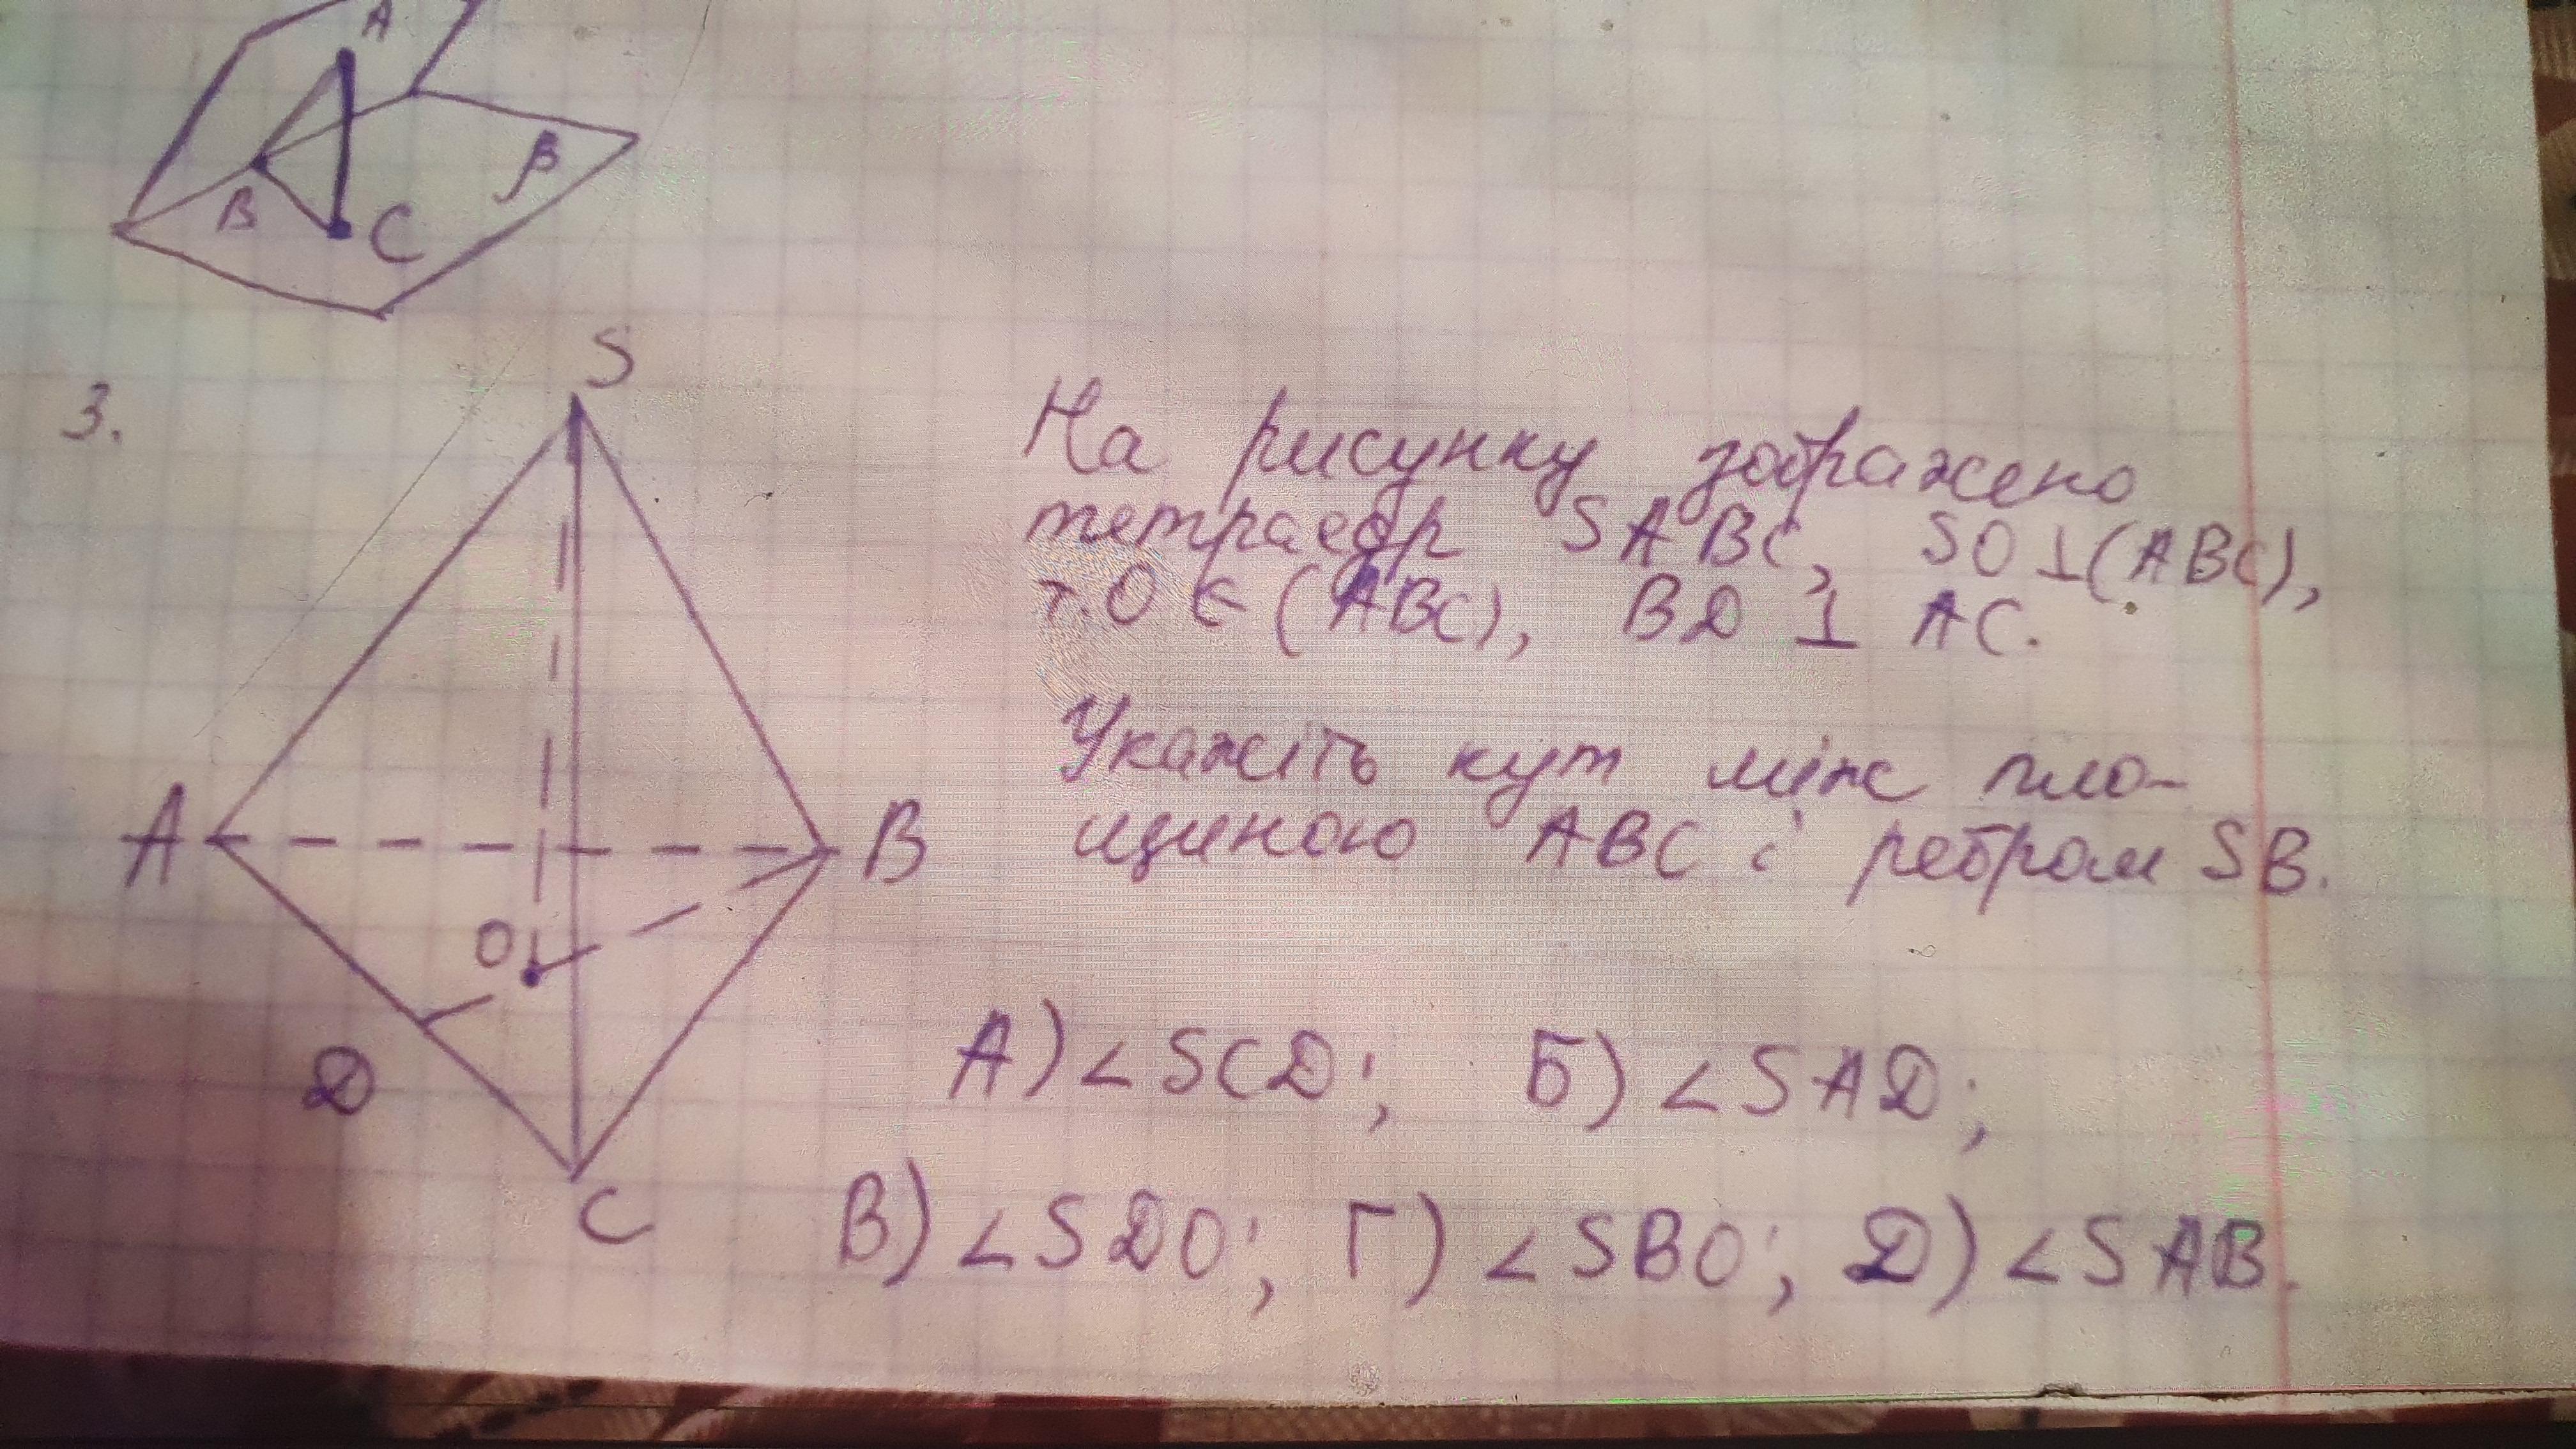 A
β
B
C
3.
S
На рисунку зображено
тетраедр SABC, SO⊥(ABC),
т.O є (ABC), BD ⊥ AC.
Укажіть кут між пло-
щиною ABC і ребром SB.
A
B
O
D
C
А) ∠SCD; Б) ∠SAD;
В) ∠SDO; Г) ∠SBO; Д) ∠SAB.